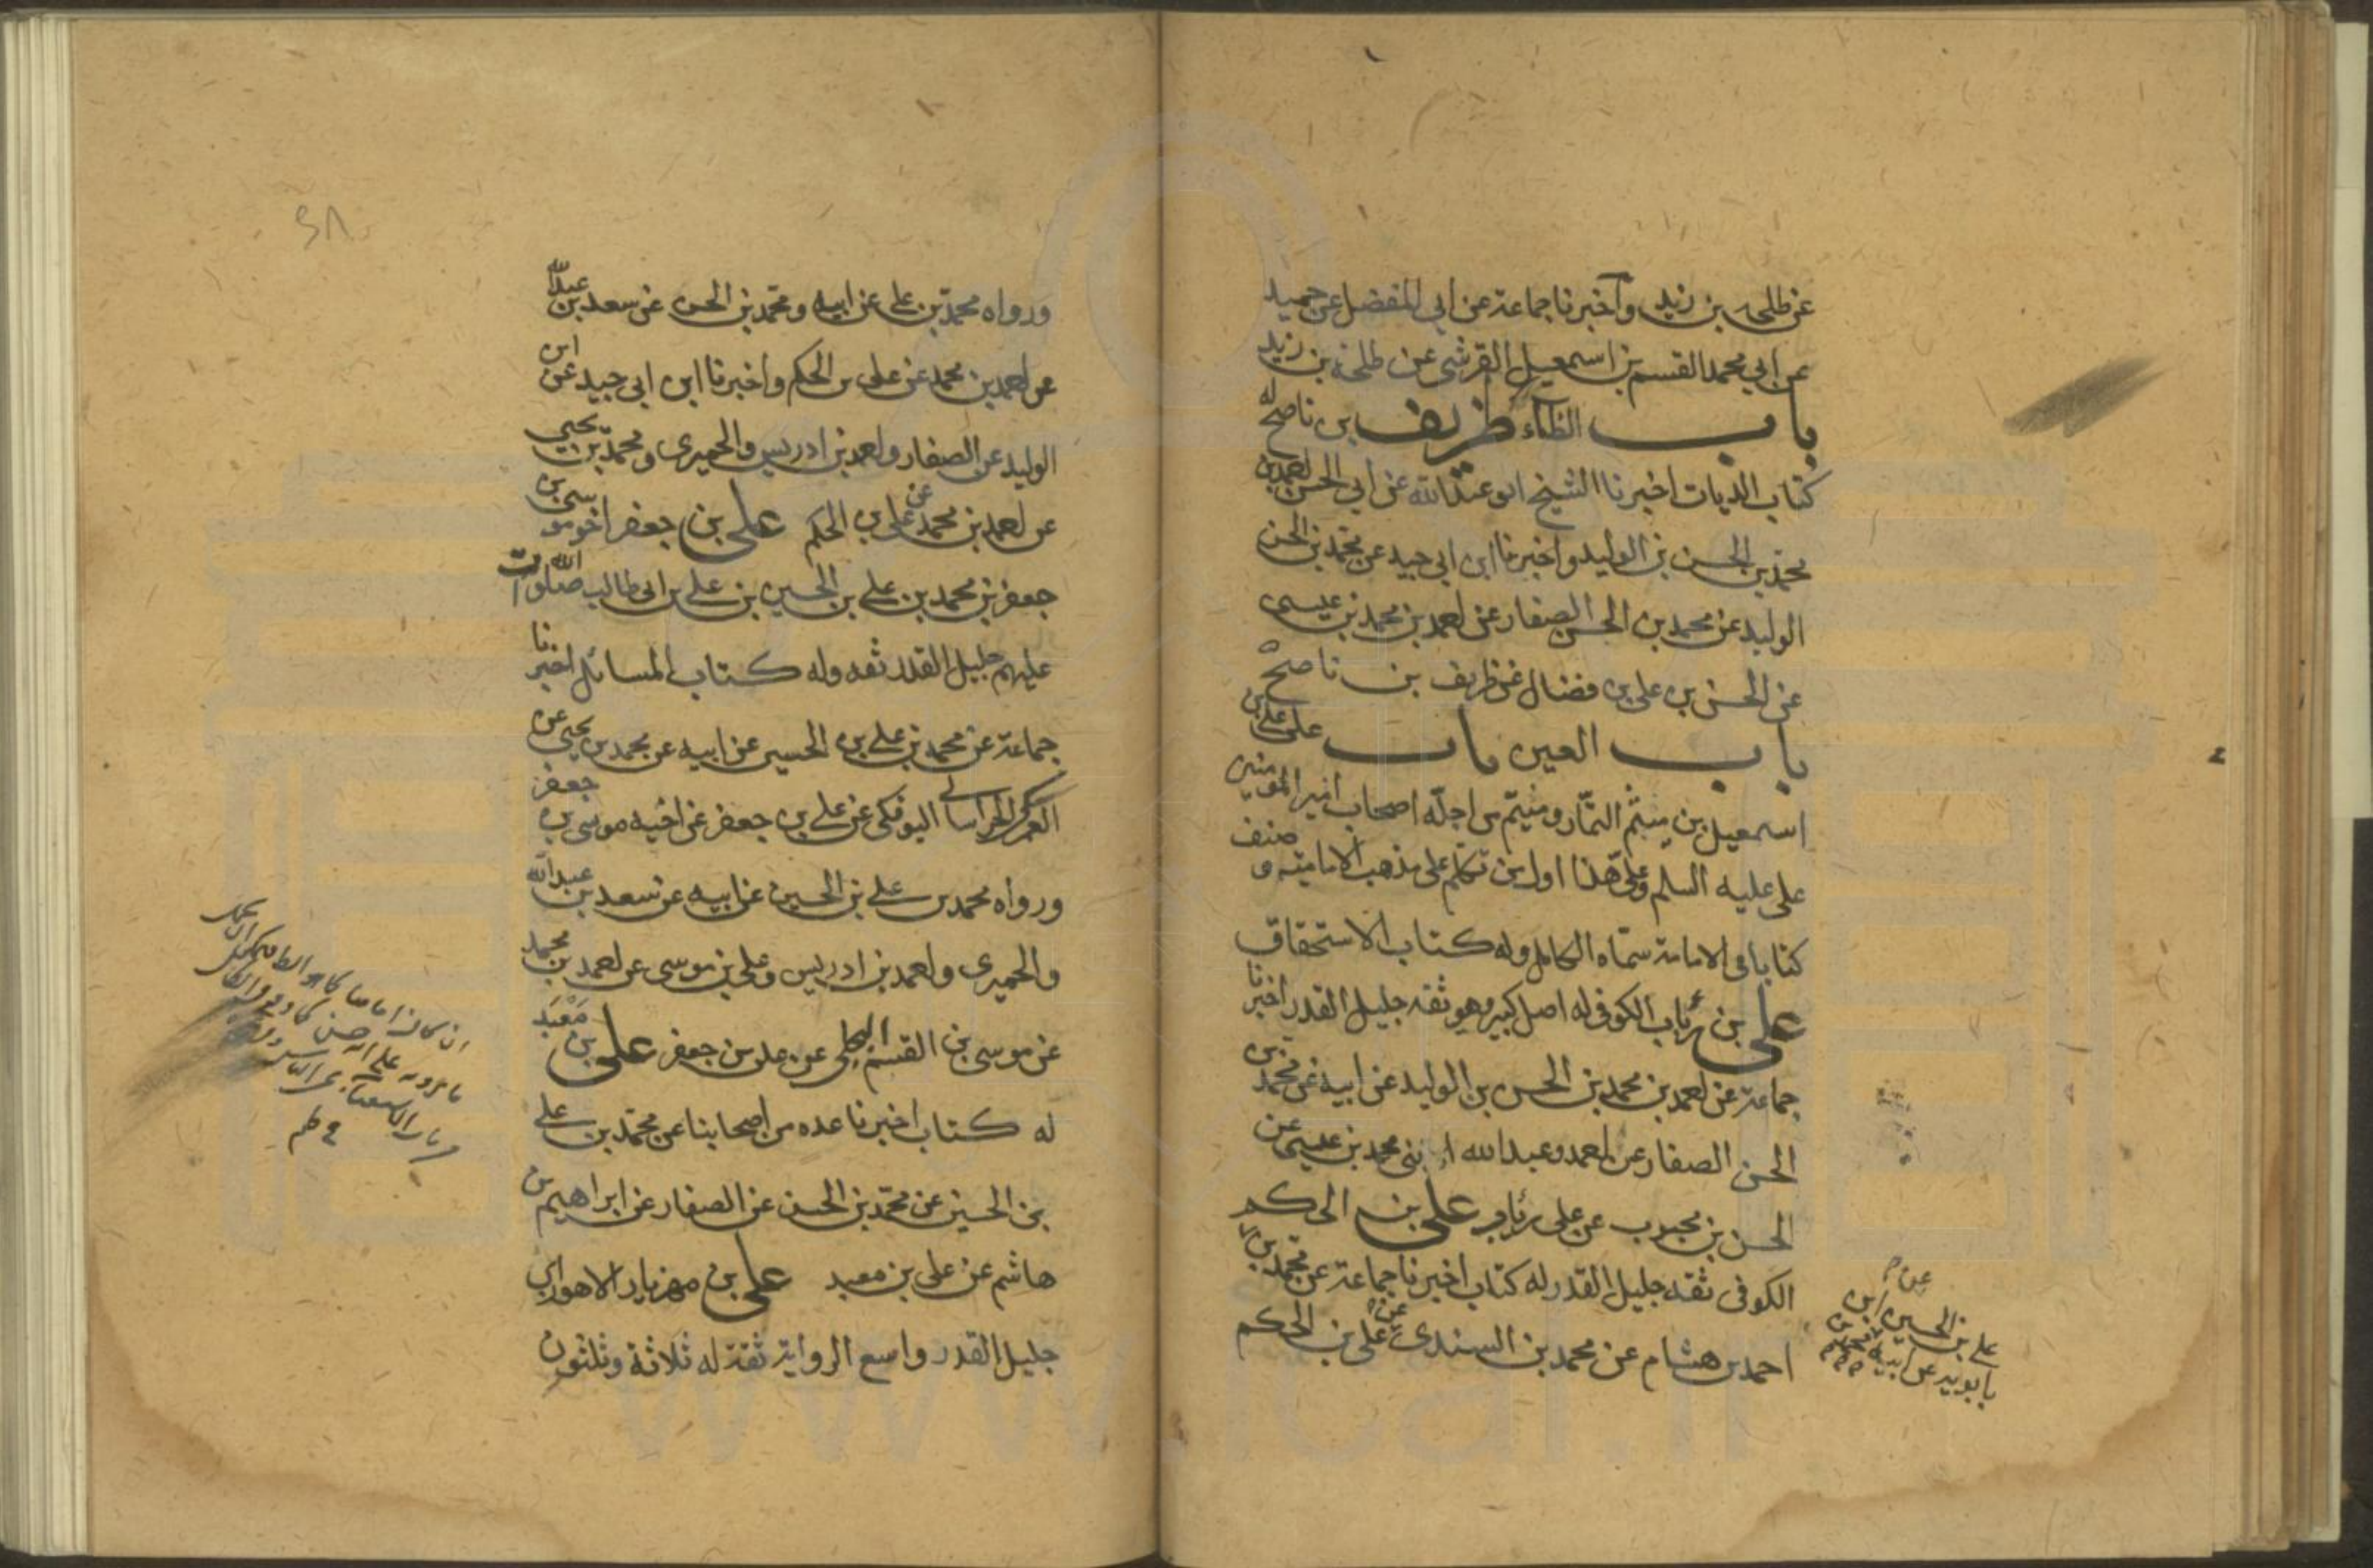 عن طلحة بن زيد وأخبرنا جماعة عن ابي المفضل عن حميد
عن ابي محمد القسم بن اسمعيل القرشي عن طلحة بن زيد
باب الظاء ظريف بن ناصح له
كتاب الديات اخبرنا الشيخ ابو عبد الله عن ابي الحسن احمد بن
محمد بن الحسن بن الوليد واخبرنا ابن ابي جيد عن محمد بن الحسن
الوليد عن محمد بن الحسن الصفار عن احمد بن محمد بن عيسى
عن الحسن بن علي بن فضال عن ظريف بن ناصح
باب العين باب علي علي بن
اسمعيل بن ميثم التمار وميثم من اجلة اصحاب امير المومنين
علي عليه السلم وعلي هذا اول من تكلم على مذهب الامامية و صنف
كتابا في الامامة سماه الكامل وله كتاب الاستحقاق
علي بن رئاب الكوفي له اصل كبير وهو ثقة جليل القدر اخبرنا
جماعة عن احمد بن محمد بن الحسن بن الوليد عن ابيه عن محمد بن
الحسن الصفار عن احمد وعبد الله ابني محمد بن عيسى عن
الحسن بن محبوب عن علي رئاب علي بن الحكم
الكوفي ثقة جليل القدر له كتاب اخبرنا جماعة عن محمد بن
احمد بن هشام عن محمد بن السندي عن علي بن الحكم
علي بن الحسين ابن
بابويه عن ابيه
٢٨
ورواه محمد بن علي عن ابيه ومحمد بن الحسن عن سعد بن عبد الله
عن احمد بن محمد عن علي بن الحكم واخبرنا ابن ابي جيد عن ابن
الوليد عن الصفار واحمد بن ادريس والحميري ومحمد بن يحيى
عن احمد بن محمد عن علي بن الحكم علي بن جعفر اخو موسى بن
جعفر بن محمد بن علي بن الحسين بن علي بن ابي طالب صلوات الله
عليهم جليل القدر ثقه وله كتاب المسائل اخبرنا
جماعة عن محمد بن علي بن الحسين عن ابيه عن محمد بن يحيى عن
العمركي الخراساني البوفكي عن علي بن جعفر عن اخيه موسى بن جعفر
ورواه محمد بن علي بن الحسين عن ابيه عن سعد بن عبد الله
والحميري واحمد بن ادريس وعلي بن موسى عن احمد بن محمد
عن موسى بن القسم البجلي عن علي بن جعفر علي بن معبد
له كتاب اخبرنا عده من اصحابنا عن محمد بن علي
بن الحسين عن محمد بن الحسن عن الصفار عن ابراهيم بن
هاشم عن علي بن معبد علي بن مهزيار الاهوازي
جليل القدر واسع الرواية ثقة له ثلاثة وثلثون